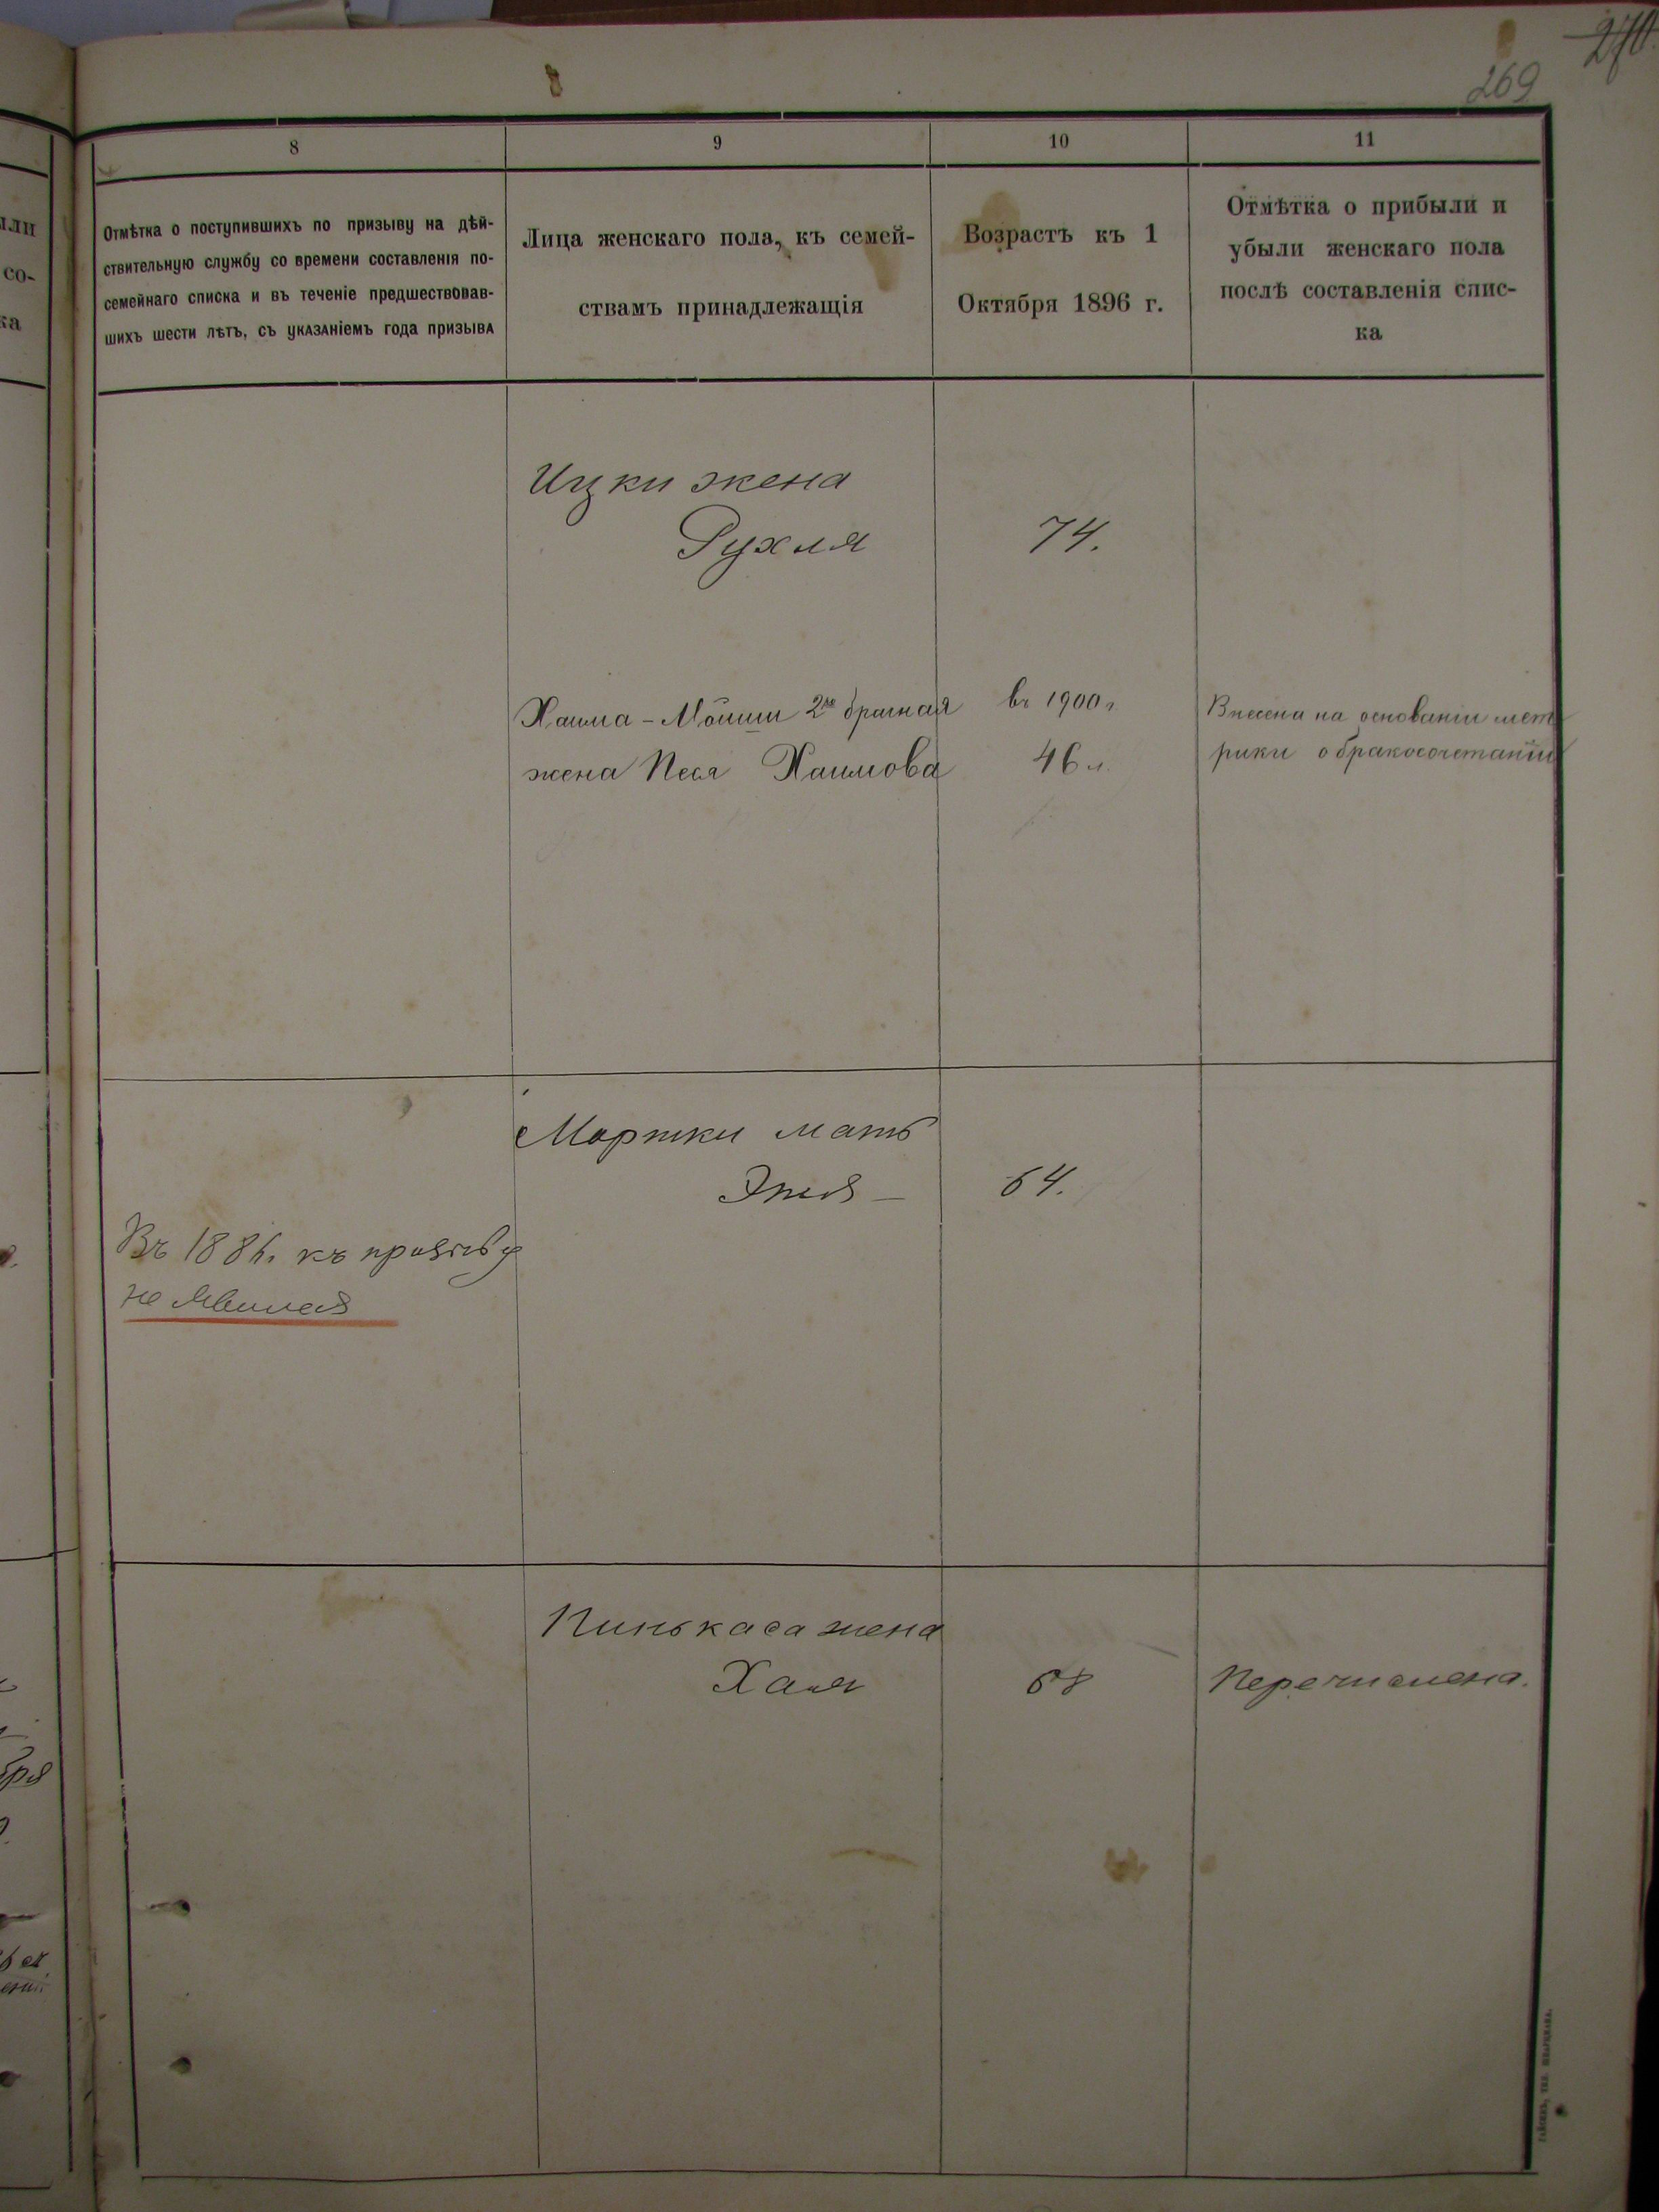 270
269
8
9
10
11
Отмѣтка о поступившихъ по призыву на дѣй-
ствительную службу со времени составленія по-
семейнаго списка и въ теченіе предшествовав-
шихъ шести лѣтъ, съ указаніемъ года призыва
Лица женскаго пола, къ семей-
ствамъ принадлежащія
Возрастъ къ 1
Октября 1896 г.
Отмѣтка о прибыли и
убыли женскаго пола
послѣ составленія спис-
ка
Ицки жена
Рухля
74.
Хаима-Мойши 2хъ брачная
жена Песя Хаимова
въ 1900 г.
46 л.
Внесена на основаніи мет
рики о бракосочетаніи
Мортки мать
64.
Въ 1886. къ призыву
не явился
Пинькаса жена
Хая
68
Перечислена.